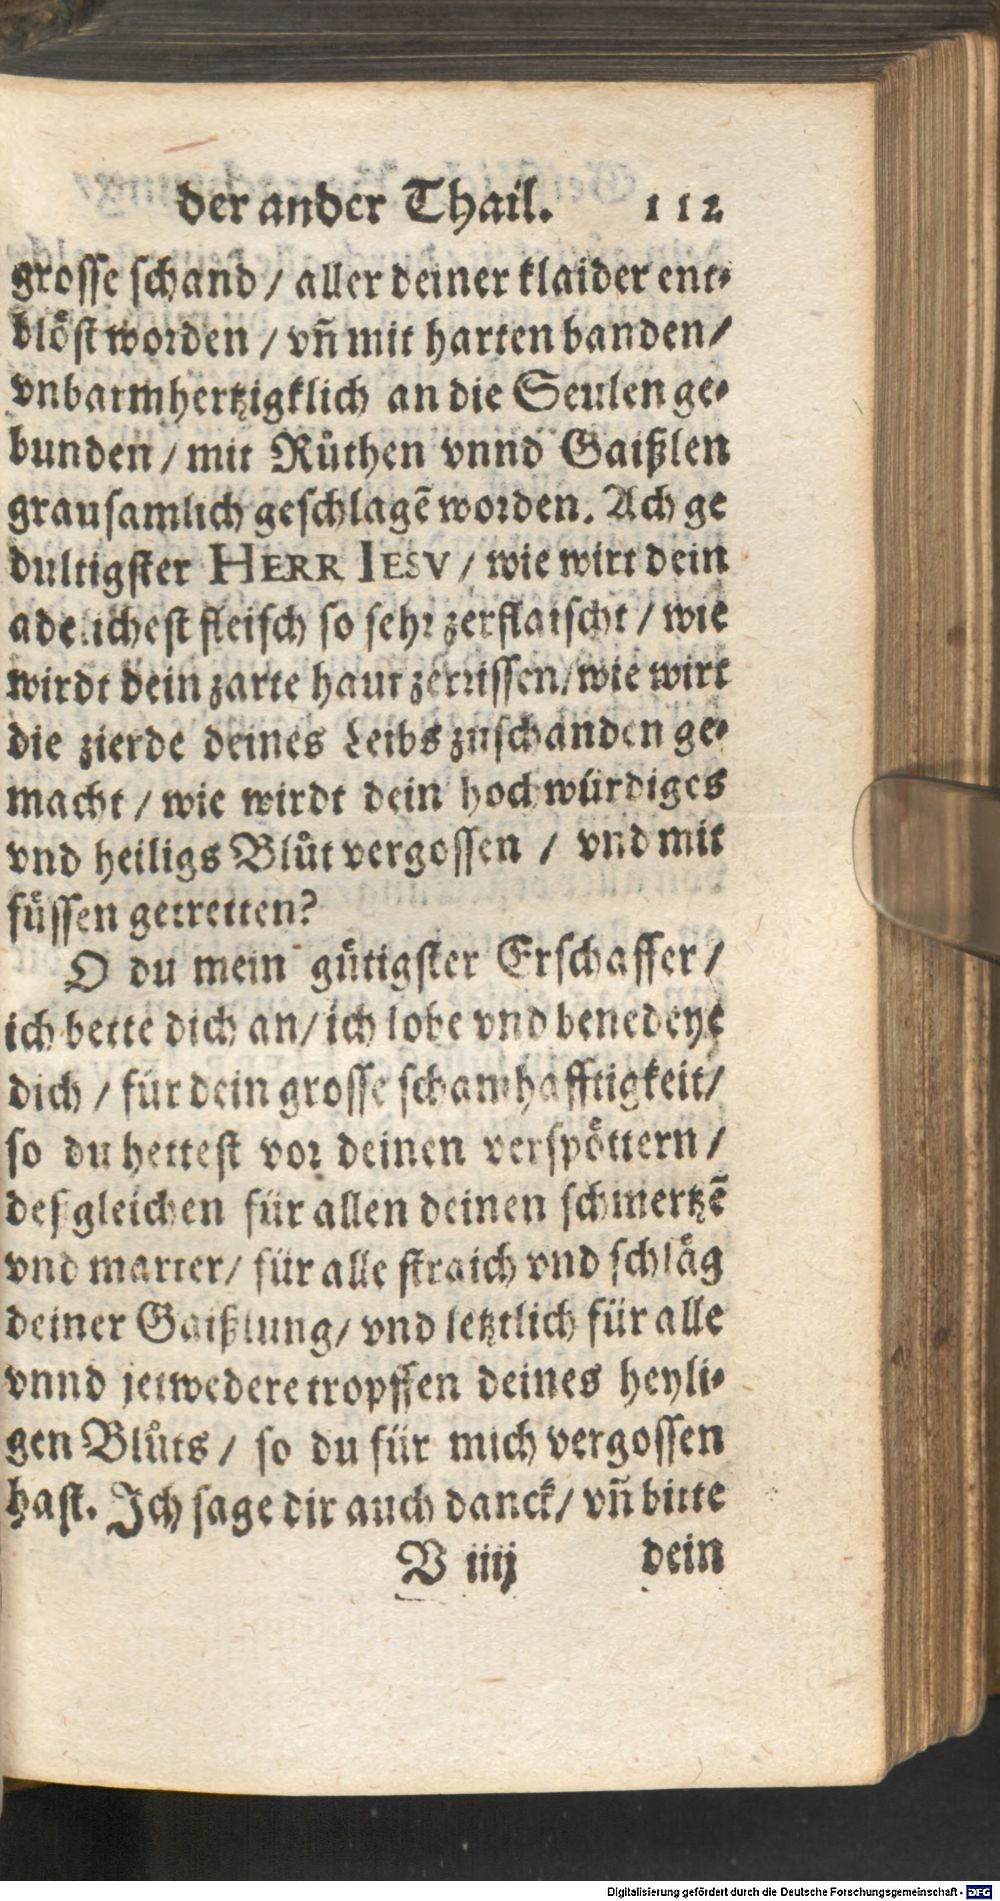 der ander Thail. 112
grosse schand / aller deiner klaider ent-
blöst worden / vn̄ mit harten banden /
vnbarmhertzigklich an die Seulen ge-
bunden / mit Růthen vnnd Gaißlen
grausamlich geschlagẽ worden. Ach ge
dultigster HERR IESV / wie wirt dein
adelichest fleisch so sehr zerflaischt / wie
wirdt dein zarte haut zerrissen / wie wirt
die zierde deines Leibs zuschanden ge-
macht / wie wirdt dein hochwürdiges
vnd heiligs Blůt vergossen / vnd mit
füssen getretten?
O du mein gütigster Erschaffer /
ich bette dich an / ich lobe vnd benedeye
dich / für dein grosse schamhafftigkeit /
so du hettest vor deinen verspöttern /
deßgleichen für allen deinen schmertzẽ
vnd marter / für alle straich vnd schläg
deiner Gaißlung / vnd letztlich für alle
vnnd jetwedere tropffen deines heyli-
gen Blůts / so du für mich vergossen
hast. Ich sage dir auch danck / vn̄ bitte
V iiij dein
Digitalisierung gefördert durch die Deutsche Forschungsgemeinschaft - DFG